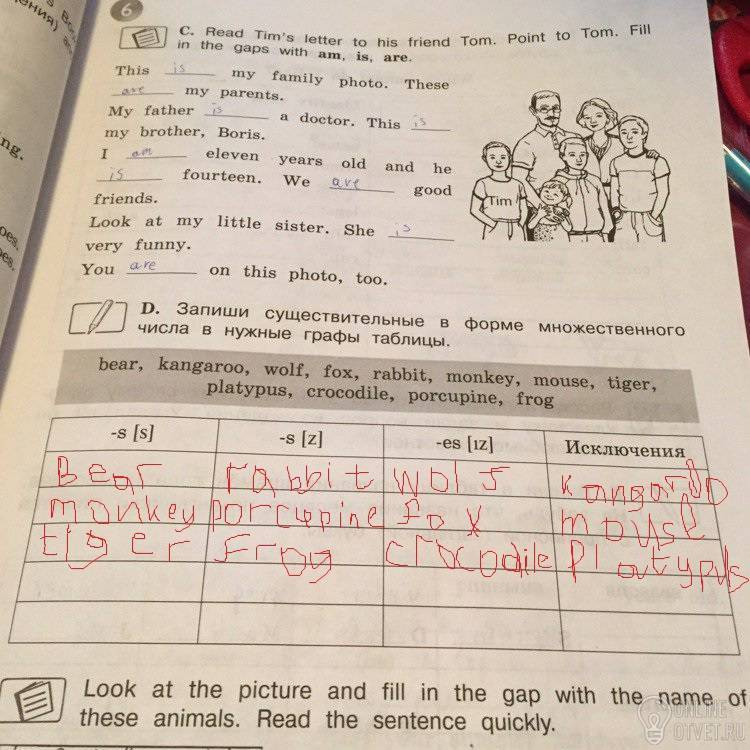 6
C. Read Tim's letter to his friend Tom. Point to Tom. Fill
in the gaps with am, is, are.
This is my family photo. These
are my parents.
My father is a doctor. This is
my brother, Boris.
I am eleven years old and he
is fourteen. We are good
friends.
Look at my little sister. She is
very funny.
You are on this photo, too.
Tim
D. Запиши существительные в форме множественного
числа в нужные графы таблицы.
bear, kangaroo, wolf, fox, rabbit, monkey, mouse, tiger,
platypus, crocodile, porcupine, frog
-s [s] -s [z] -es [ɪz] Исключения
Bear rabbit wolf kangaroo
monkey porcupine fox mouse
tiger frog crocodile platypus
Look at the picture and fill in the gap with the name of
these animals. Read the sentence quickly.
ONLINE
OTVET.RU